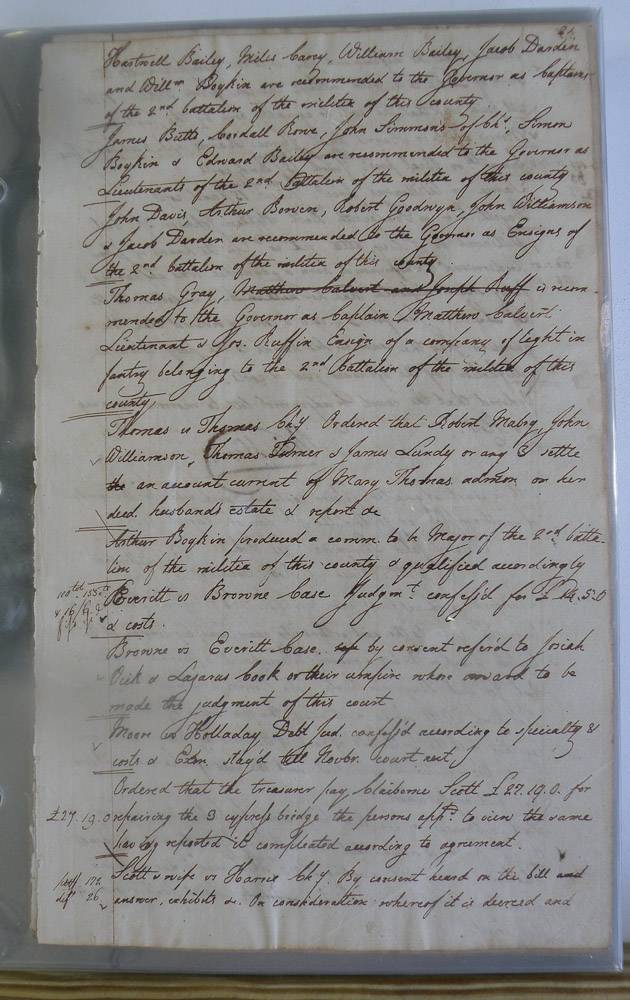 Hartwell Bailey, Miles Cary, William Bailey, Jacob Darden
and Willm Boykin are recommended to the Governor as Captains
of the 2nd battalion of the militia of this county
James Butts, Cordall Rowe, John Simmons of Chs, Simon
Boykin & Edward Bailey are recommended to the Governor as
Lieutenants of the 2nd battalion of the militia of this county
John Davis, Arthur Bowen, Robert Goodwyn, John Williamson
& Jacob Darden are recommended to the Governor as Ensigns of
the 2nd battalion of the militia of this county
Thomas Gray, Matthew Calvert and Joseph Ruff is recom-
mended to the Governor as Captain Matthew Calvert
Lieutenant & Jos. Ruffin Ensign of a company of light in
fantry belonging to the 2nd battalion of the militia of this
county
Thomas vs Thomas Chy Ordered that Robert Mabry, John
Williamson, Thomas Turner & James Lundy or any 3 settle
the an account current of Mary Thomas admon. on her
decd. husband's estate & report &c
Arthur Boykin produced a comm. to be Major of the 2nd batta-
lion of the militia of this county & qualified accordingly
Everitt vs Browne Case Judgmt. confess'd for £ 14.5.0
& costs.
Browne vs Everitt Case. ref by consent refer'd to Josiah
Vick & Lazarus Cook or their umpire whose award to be
made the judgment of this court
Moore vs Holladay Debt Jud. confess'd according to specialty &
costs & Exon. stay'd till Novbr. court next
Ordered that the treasurer pay Claiborne Scott £27.19.0. for
£27.19.0 repairing the 3 cypress bridge the persons appd. to view the same
having reported it compleated according to agreement.
Scott & wife vs Harris Chy. By consent heard on the bill and
172
26
answer, exhibits &. On consideration whereof it is decreed and